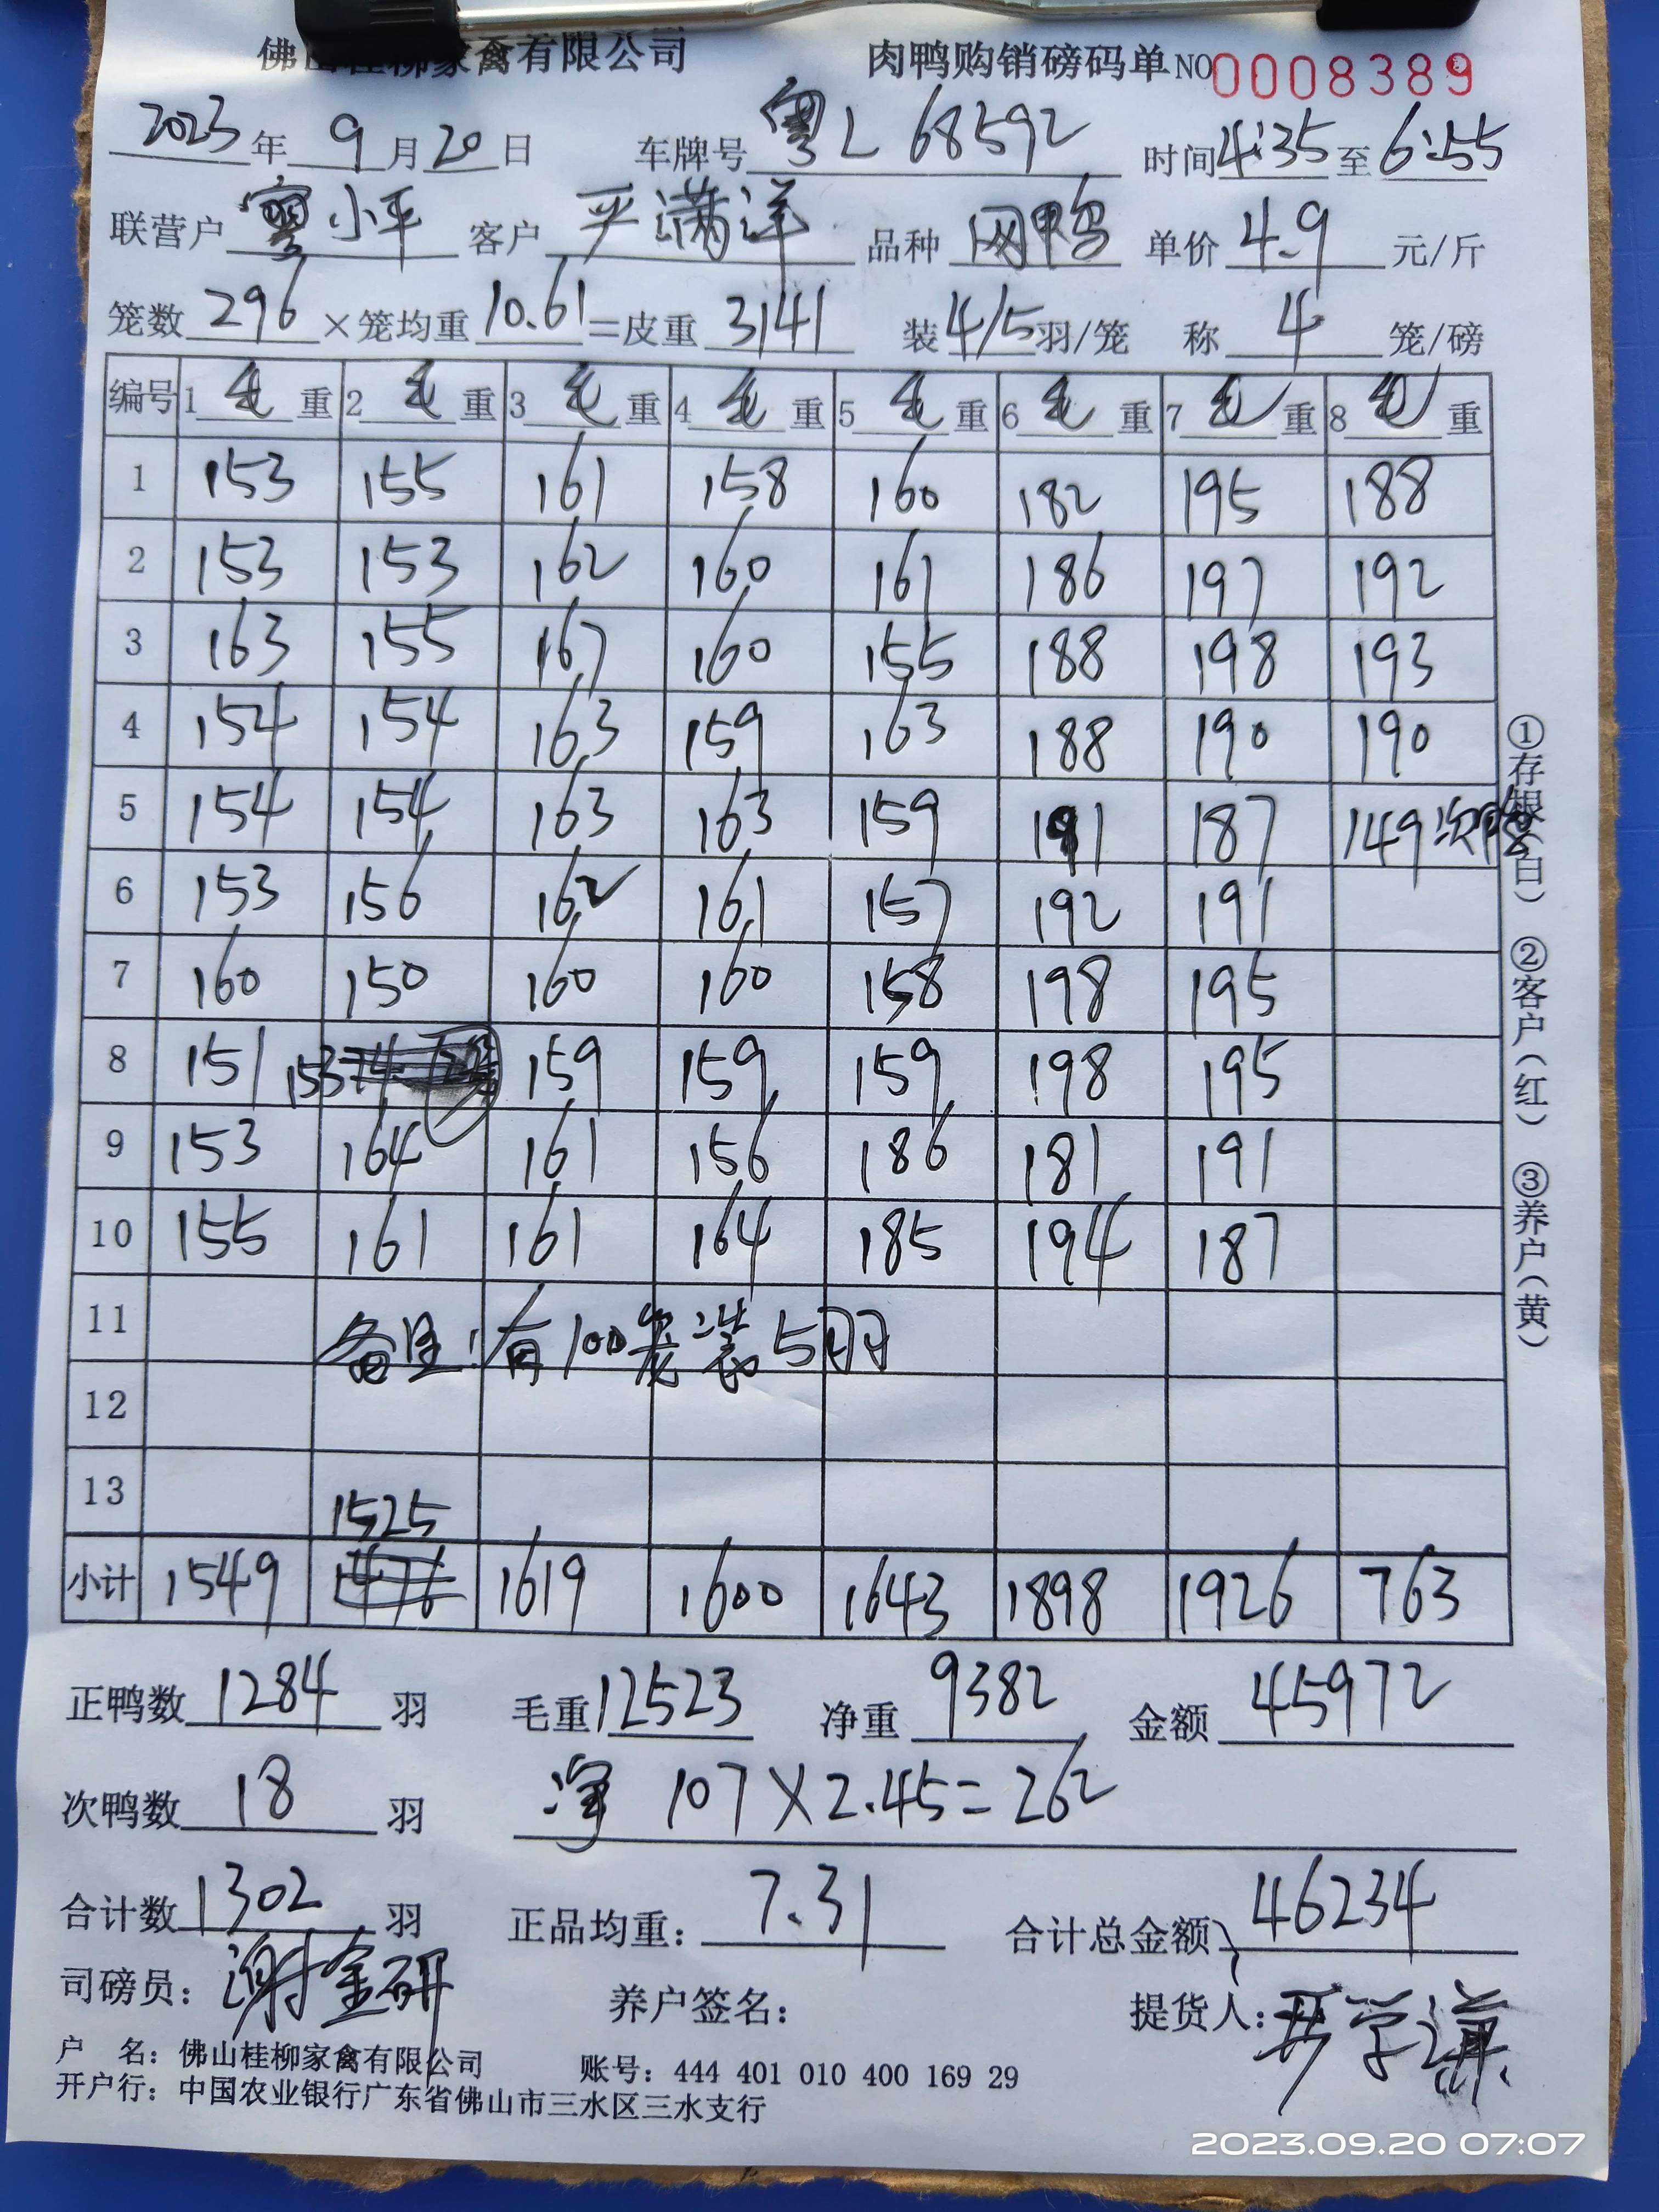 佛山桂柳家禽有限公司 肉鸭购销磅码单 NO 0008389
2023年 9月20日 车牌号 粤L 68592 时间4:35至6:55
联营户 小平 客户 严满洋 品种 网鸭 单价 4.9 元/斤
笼数 296 ×笼均重 10.61 =皮重 3141 装4/5羽/笼 称 4 笼/磅
编号 1 毛 重 2 毛 重 3 毛 重 4 毛 重 5 毛 重 6 毛 重 7 毛 重 8 毛 重
1 153 155 161 158 160 182 195 188
2 153 153 162 160 161 186 197 192
3 163 155 167 160 155 188 198 193
4 154 154 163 159 163 188 190 190
5 154 154 163 163 159 191 187 149 次鸭
6 153 156 162 161 157 192 191
7 160 150 160 160 158 198 195
8 151 153 159 159 159 198 195
9 153 164 161 156 186 181 191
10 155 161 161 164 185 194 187
11 备注:有100笼装5羽
12
13 1525
小计 1549 1476 1619 1600 1643 1898 1926 763
正鸭数 1284 羽 毛重12523 净重 9382 金额 45972
次鸭数 18 羽 净 107×2.45=262
合计数 1302 羽 正品均重: 7.31 合计总金额 46234
司磅员: 谢金研 养户签名: 提货人:
户 名: 佛山桂柳家禽有限公司 账号: 444 401 010 400 169 29
开户行: 中国农业银行广东省佛山市三水区三水支行
①存根(白) ②客户(红) ③养户(黄)
2023.09.20 07:07